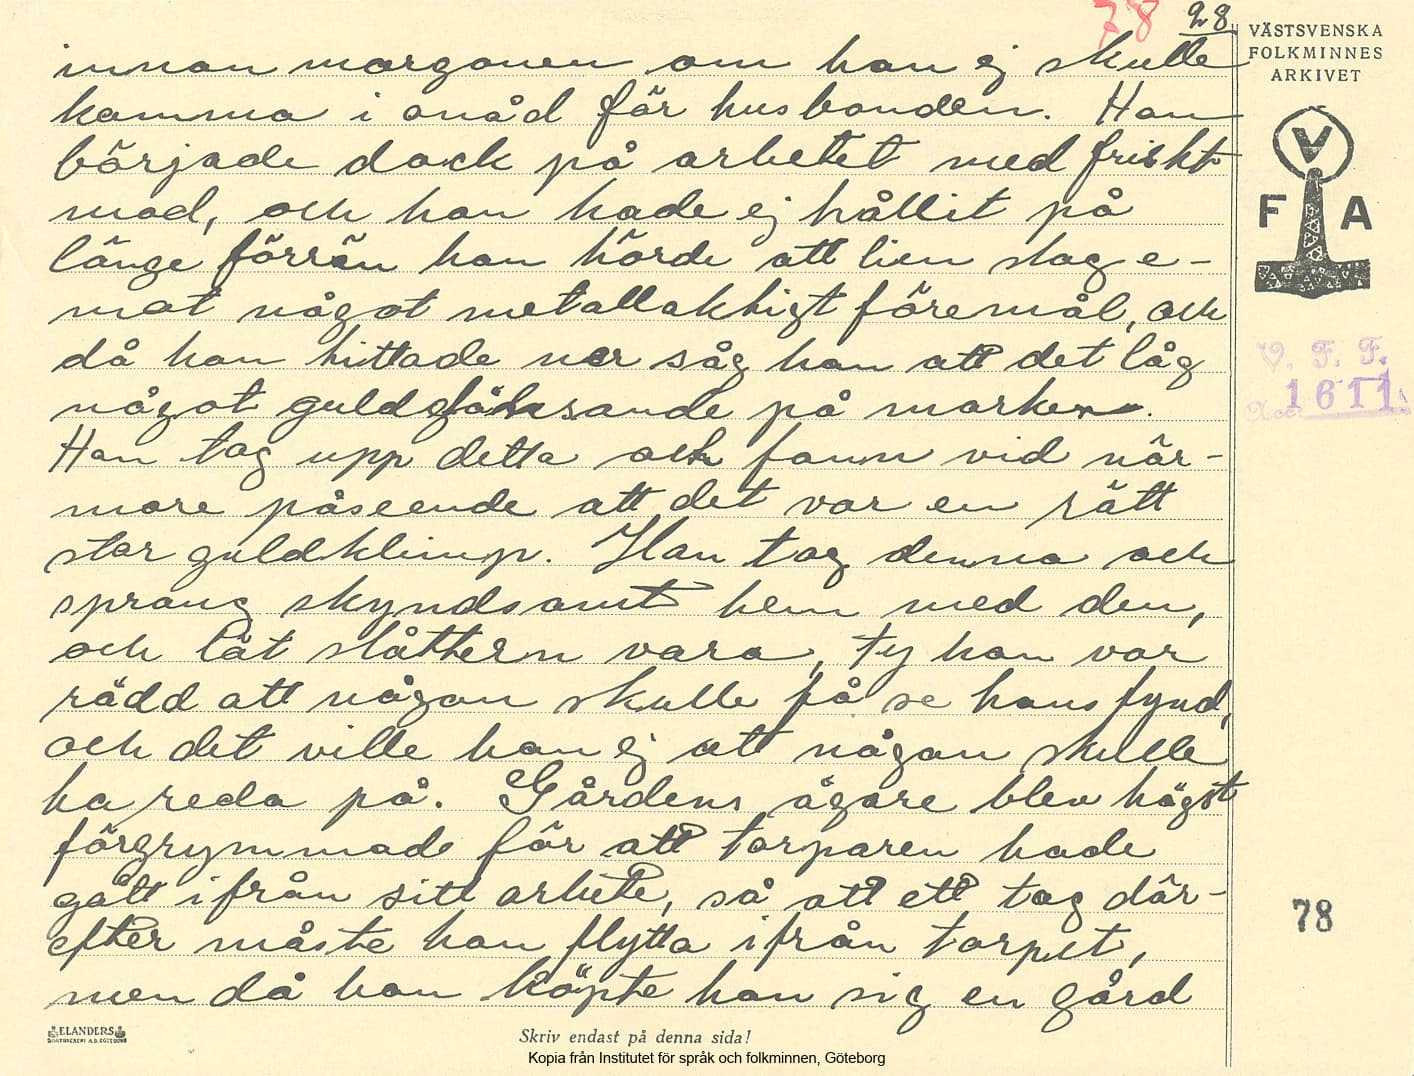 78 28
VÄSTSVENSKA
FOLKMINNES
ARKIVET
V
F A
V. F. F.
Acc. 1611
innan morgonen om han ej skulle
komma i onåd för husbonden. Han
började dock på arbetet med friskt
mod, och han hade ej hållit på
länge förrän han hörde att lien slog e-
mot något metallaktigt föremål, och
då han tittade ner såg han att det låg
något guldglänsande på marken.
Han tog upp detta och fann vid när-
mare påseende att det var en rätt
stor guldklimp. Han tog denna och
sprang skyndsamt hem med den,
och lät slåttern vara, ty han var
rädd att någon skulle få se hans fynd,
och det ville han ej att någon skulle
ha reda på. Gårdens ägare blev högst
förgrymmad för att torparen hade
gått ifrån sitt arbete, så att ett tag där-
efter måste han flytta ifrån torpet,
men då han köpte han sig en gård
78
ELANDERS
BOKTRYCKERI A.B. GÖTEBORG
Skriv endast på denna sida!
Kopia från Institutet för språk och folkminnen, Göteborg